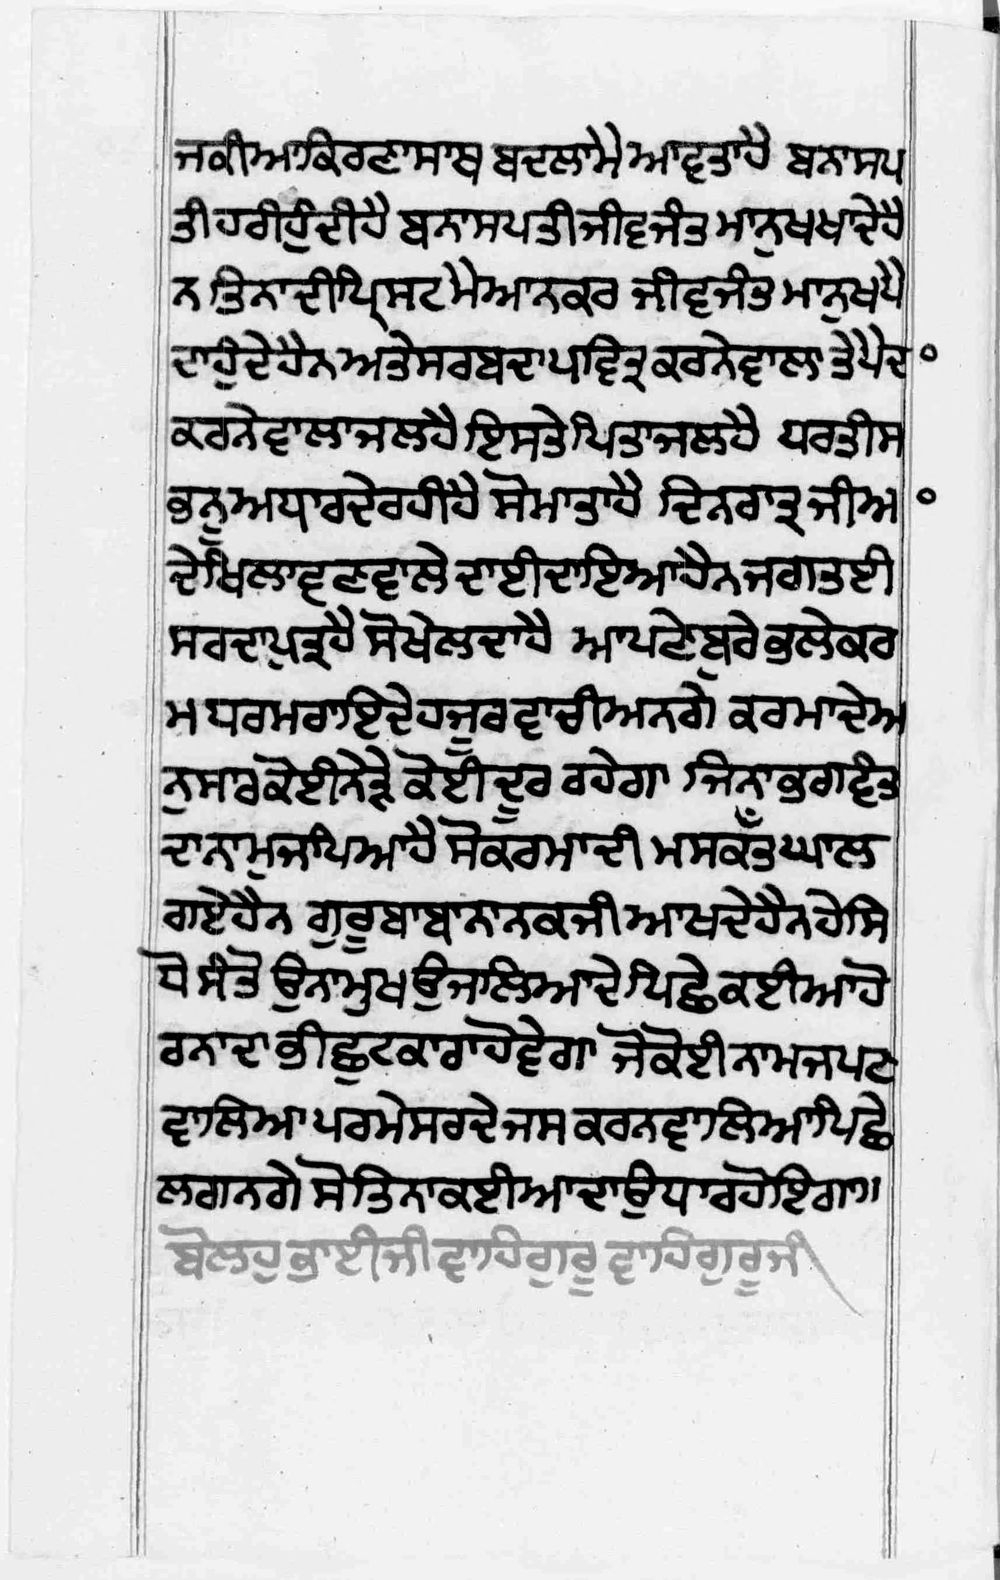 ਜਕੀਆਕਿਰਣਾਸਾਥ ਬਦਲਾਮੈ ਆਵਤਾਹੈ ਬਨਾਸਪ
ਤੀਹਰੀਹੁੰਦੀਹੈ ਬਨਾਸਪਤੀਜੀਵਜੰਤ ਮਾਨੁਖਖਾਦੇਹੈ
ਨ ਤਿਨਾਦੀਪ੍ਰਿਸਟਮੈਆਨਕਰ ਜੀਵਜੰਤ ਮਾਨੁਖਪੈ
ਦਾਹੁੰਦੇਹੈਨਅਤੇਸਰਬਦਾਪਵਿਤ੍ਰਕਰਨੇਵਾਲਾ ਤੇਪੈਦ°
ਕਰਨੇਵਾਲਾਜਲਹੈਇਸਤੇਪਿਤਾਜਲਹੈ ਧਰਤੀਸ
ਭਨੂਅਧਾਰਦੇਰਹੀਹੈ ਸੋਮਾਤਾਹੈ ਦਿਨਰਾਤ੍ਰਜੀਅ°
ਦੇਖਿਲਾਵਣਵਾਲੇ ਦਾਈਦਾਇਆਹੈਨਜਗਤਈ
ਸਰਦਾਪੁਤ੍ਰਹੈ ਸੋਖੇਲਦਾਹੈ ਆਪਣੇਬੁਰੇਭਲੇਕਰ
ਮਧਰਮਰਾਇਦੇਹਜੂਰਵਾਚੀਅਨਗੇ ਕਰਮਾਦੇਅ
ਨੁਸਾਰਕੋਈਨੇੜੇ ਕੋਈਦੂਰ ਰਹੇਗਾ ਜਿਨਾਭਗਵੰਤ
ਦਾਨਾਮੁਜਪਿਆਹੈ ਸੋਕਰਮਾਦੀ ਮਸਕਤਿਘਾਲ
ਗਏਹੈਨ ਗੁਰੂਬਾਬਾਨਾਨਕਜੀਆਖਦੇਹੈਨਹੇਸਿ
ਧੋਸੰਤੋ ਉਨਾਮੁਖਉਜਾਲਿਆਦੇਪਿਛੇਕਈਆਹੋ
ਰਨਾਦਾਭੀਛੁਟਕਾਰਾਹੋਵੇਗਾ ਜੋਕੋਈਨਾਮਜਪਣ
ਵਾਲਿਆਪਰਮੇਸਰਦੇਜਸਕਰਨਵਾਲਿਆਪਿਛੇ
ਲਗਨਗੇ ਸੋਤਿਨਾਕਈਆਦਾਉਧਾਰਹੋਇਗਾ
ਬੋਲਹੁਭਾਈਜੀਵਾਹਿਗੁਰੂਵਾਹਿਗੁਰੂਜੀ